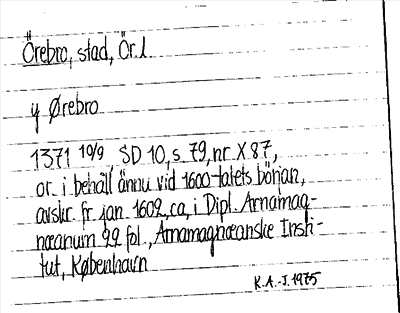 Örebro, stad, Ör. l.
y Ørebro
1371 10/9 SD 10, s. 79, nr. X 87,
or. i behåll ännu vid 1600-talets början,
avskr. fr. jan. 1602, ca, i Dipl. Arnamag-
næanum 99 fol., Arnamagnæanske Insti-
tut, København
K.A.-J. 1975